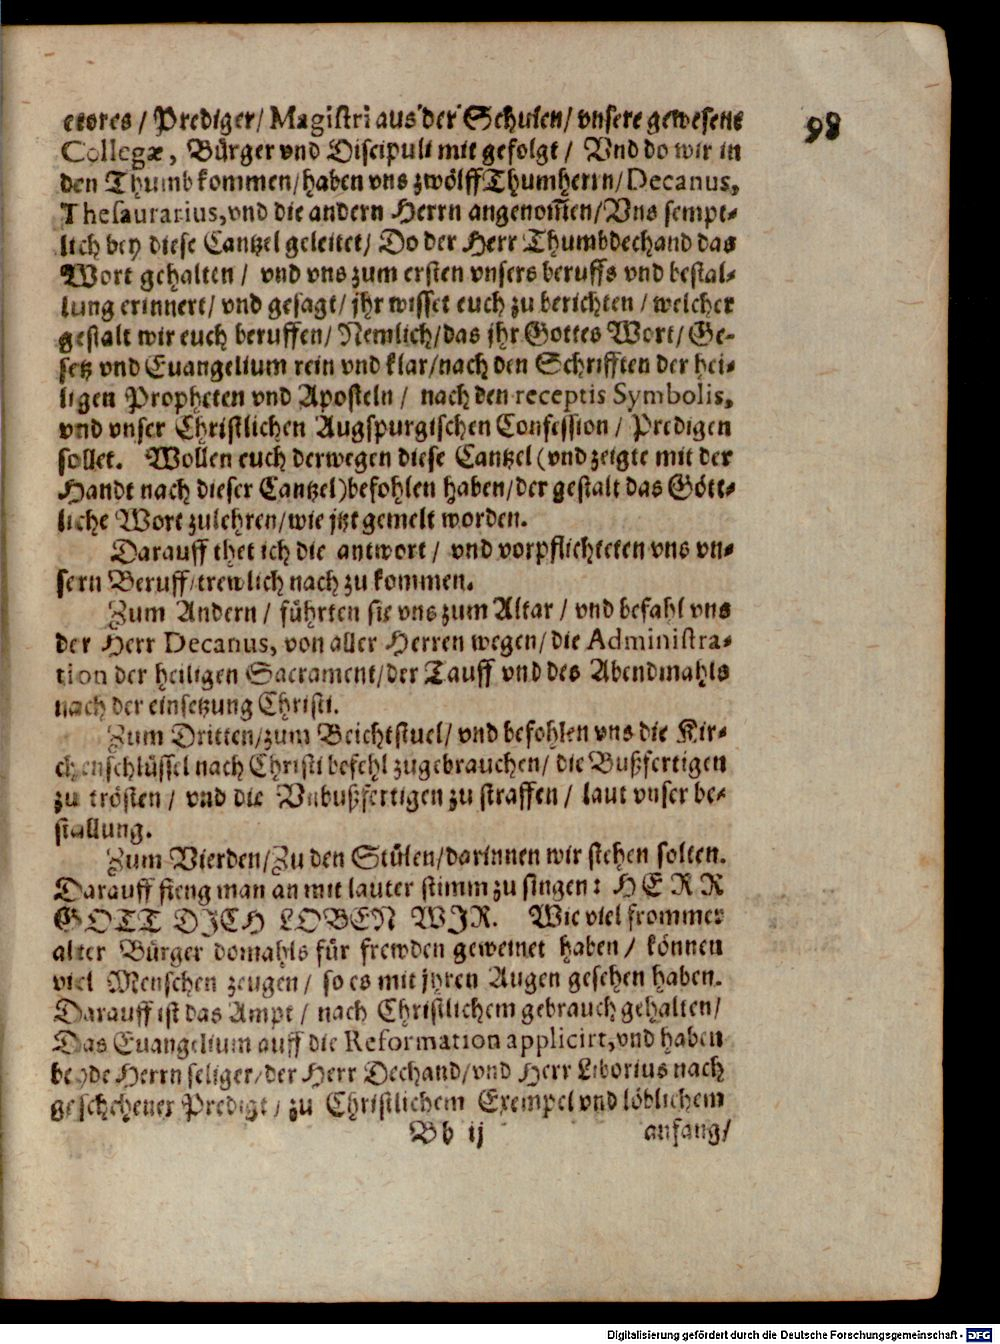 ctores / Prediger/ Magistri aus der Schulen/ vnsere gewesene
98
Collegæ, Bürger vnd Discipuli mit gefolgt / Vnd do wir in
den Thumb kommen/haben vns zwölff Thumherrn/Decanus,
Thesaurarius,vnd die andern Herrn angenom̃en/Vns sempt-
lich bey diese Cantzel geleitet/ Do der Herr Thumbdechand das
Wort gehalten / vnd vns zum ersten vnsers beruffs vnd bestal-
lung erinnert/ vnd gesagt/ jhr wisset euch zu berichten / welcher
gestalt wir euch beruffen/ Nemlich/das jhr Gottes Wort/ Ge-
setz vnd Euangelium rein vnd klar/nach den Schrifften der hei-
ligen Propheten vnd Aposteln / nach den receptis Symbolis,
vnd vnser Christlichen Augspurgischen Confession / Predigen
sollet. Wollen euch derwegen diese Cantzel (vnd zeigte mit der
Handt nach dieser Cantzel)befohlen haben/der gestalt das Gött-
liche Wort zulehren/wie jtzt gemelt worden.
Darauff thet ich die antwort / vnd vorpflichteten vns vn-
sern Beruff/trewlich nach zu kommen.
Zum Andern / führten sie vns zum Altar / vnd befahl vns
der Herr Decanus, von aller Herren wegen/die Administra-
tion der heiligen Sacrament/der Tauff vnd des Abendmahls
nach der einsetzung Christi.
Zum Dritten/zum Beichtstuel/ vnd befohlen vns die Kir-
chenschlüssel nach Christi befehl zugebrauchen/ die Bußfertigen
zu trösten / vnd die Vnbußfertigen zu straffen / laut vnser be-
stallung.
Zum Vierden/Zu den Stülen/darinnen wir stehen solten.
Darauff fieng man an mit lauter stimm zu singen: HERR
GOTT DJCH LOBEN WJR. Wie viel frommer
alter Bürger domahls für frewden geweinet haben/ können
viel Menschen zeugen/ so es mit jhren Augen gesehen haben.
Darauff ist das Ampt / nach Christlichem gebrauch gehalten/
Das Euangelium auff die Reformation applicirt,vnd haben
beyde Herrn seliger/der Herr Dechand/vnd Herr Liborius nach
geschehener Predigt / zu Christlichem Exempel vnd löblichem
Bb ij anfang/
Digitalisierung gefördert durch die Deutsche Forschungsgemeinschaft - DFG